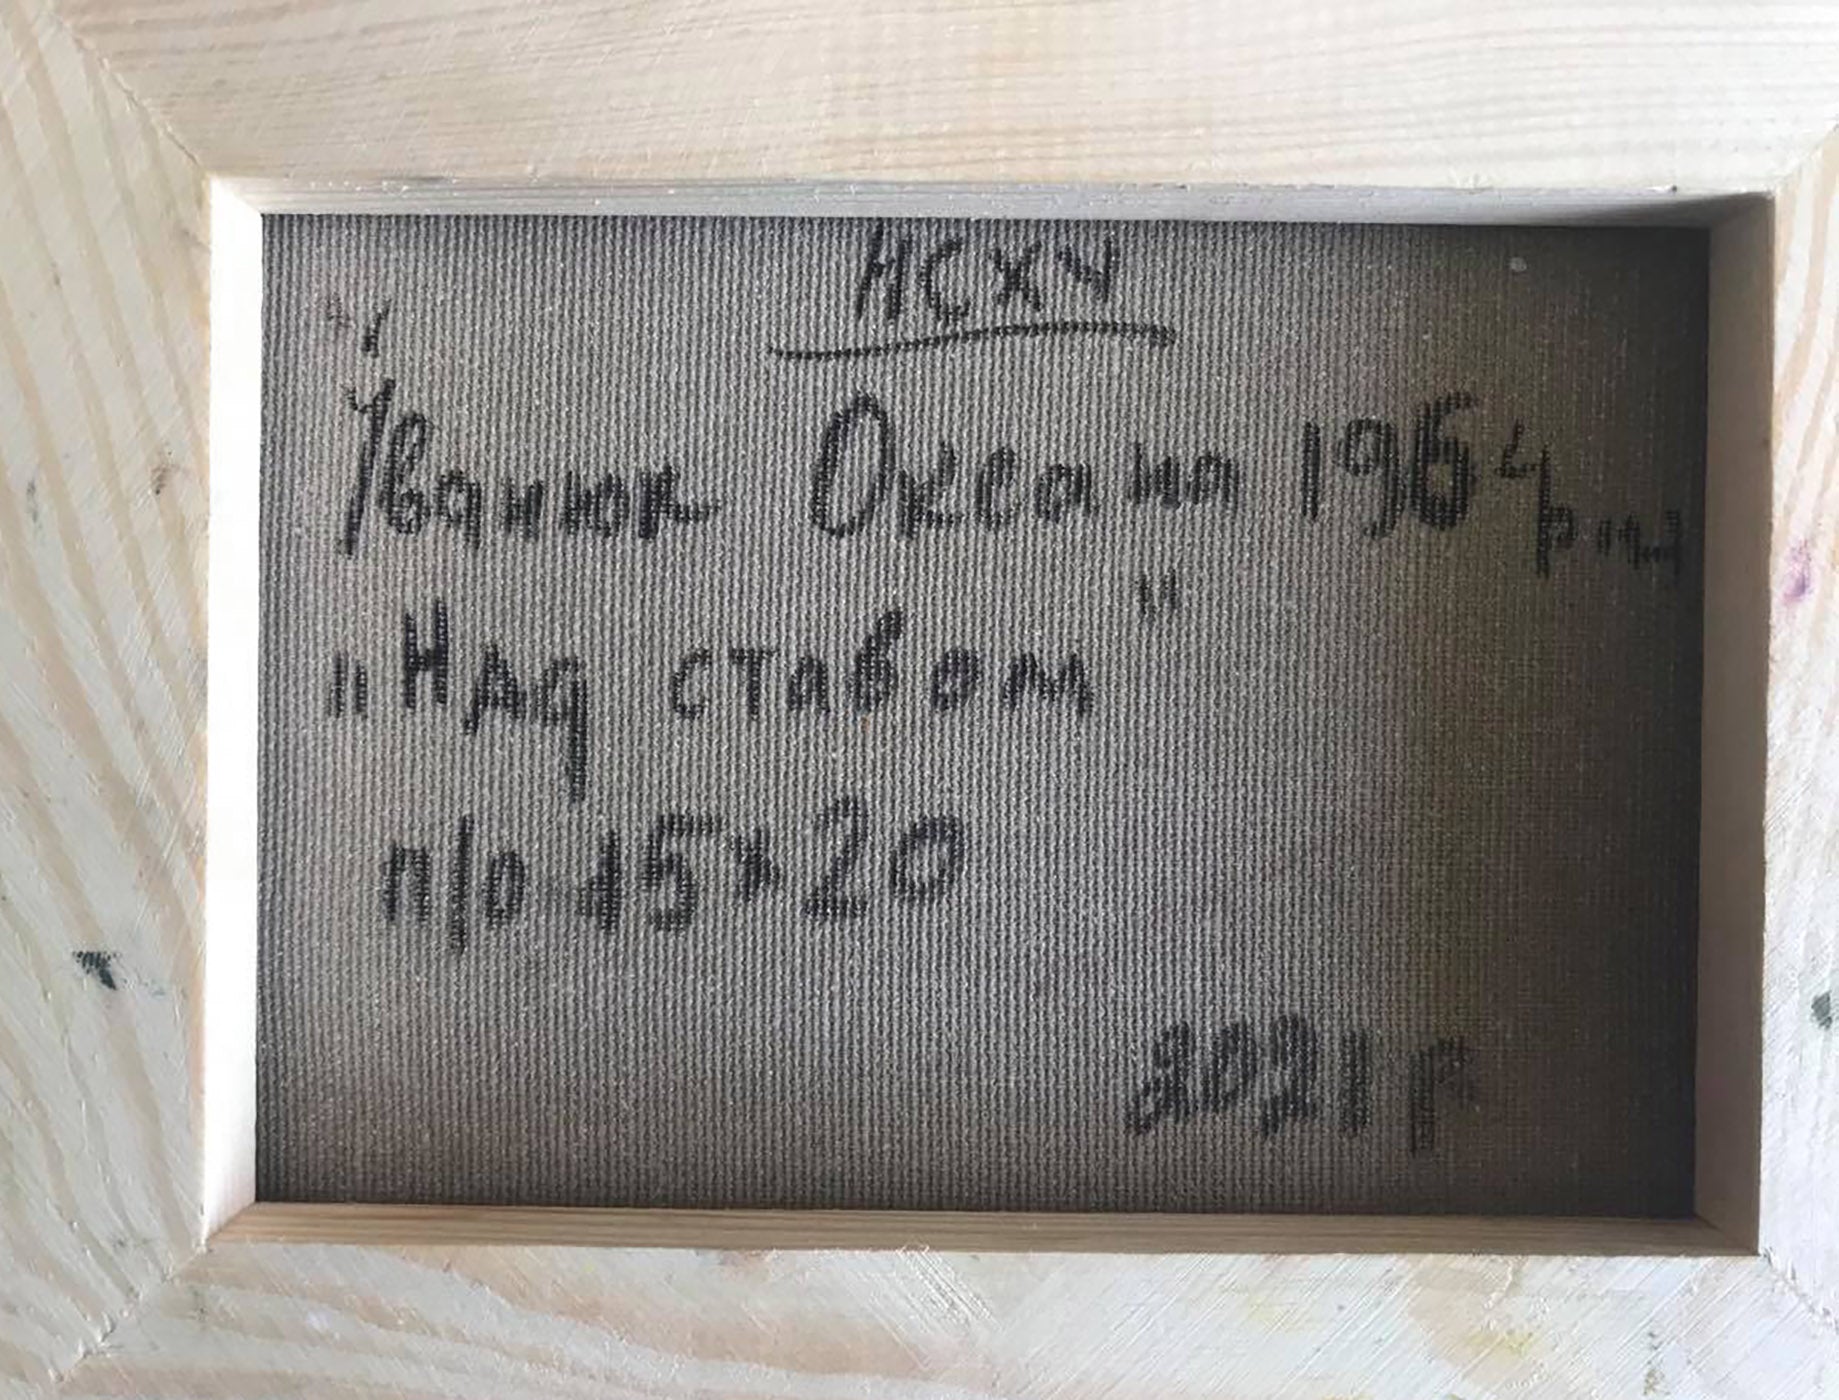 НСХУ
Іванюк Оксана 1964
"Над ставом"
п/о 15×20
2021 р